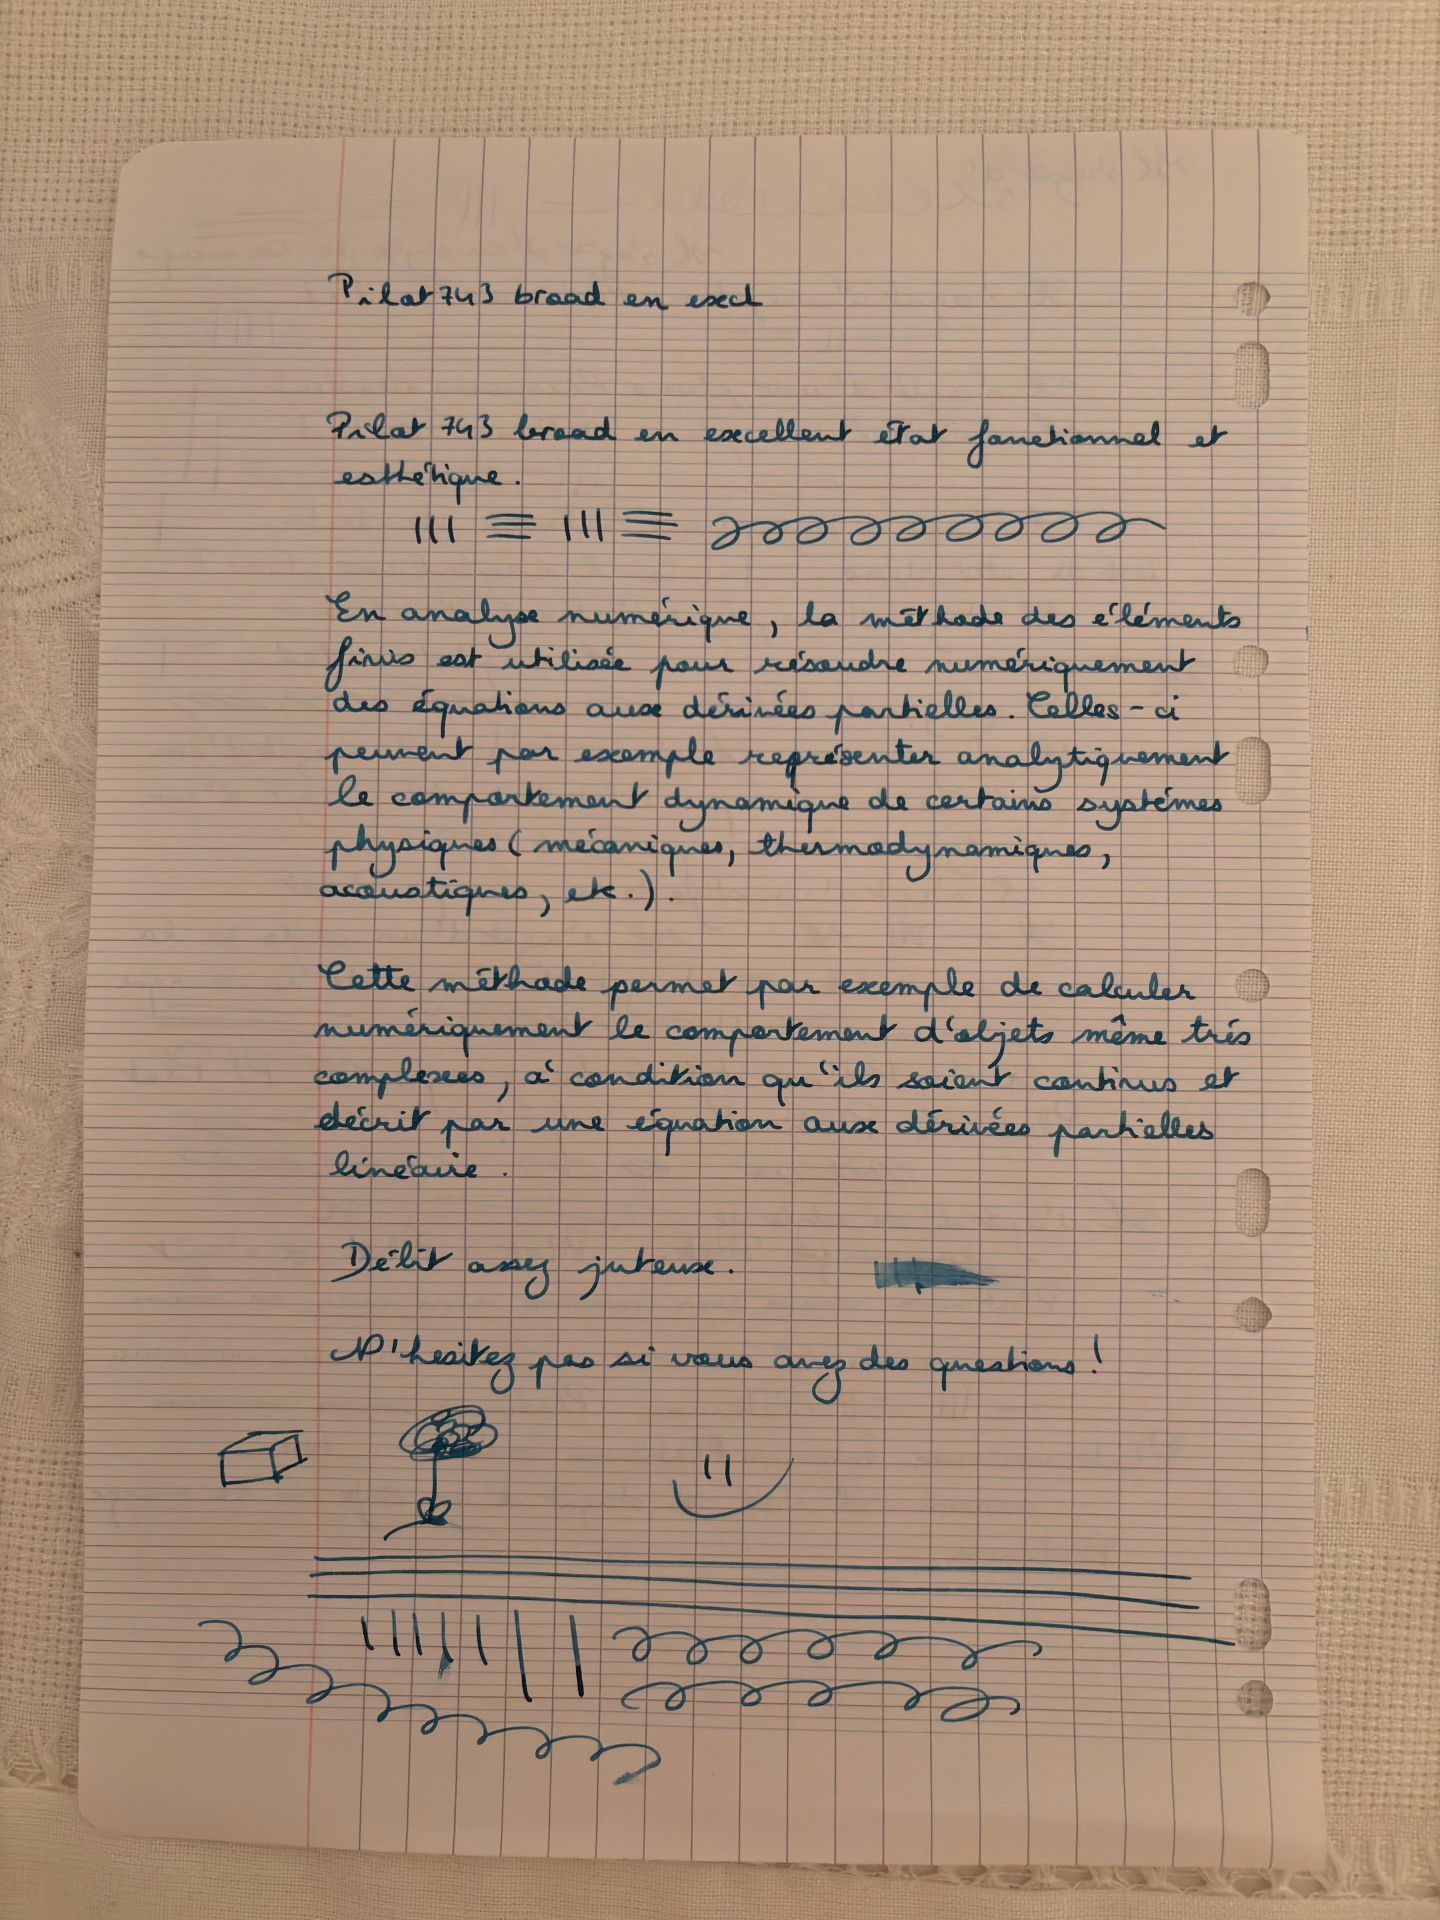 Pilot 743 broad en excel
Pilot 743 broad en excellent état fonctionnel et
esthétique.
En analyse numérique, la méthode des éléments
finis est utilisée pour résoudre numériquement
des équations aux dérivées partielles. Celles-ci
peuvent par exemple représenter analytiquement
le comportement dynamique de certains systèmes
physiques (mécaniques, thermodynamiques,
acoustiques, etc.).
Cette méthode permet par exemple de calculer
numériquement le comportement d'objets même très
complexes, à condition qu'ils soient continus et
décrit par une équation aux dérivées partielles
linéaire.
Débit assez juteux.
N'hesitez pas si vous avez des questions !